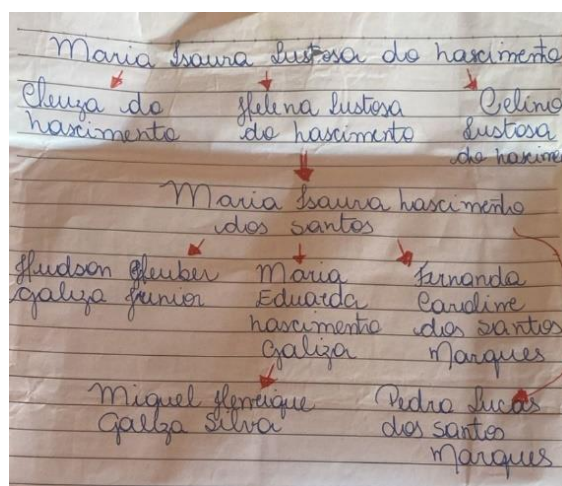 Maria Isaura Lustosa do nascimento
Cleuza do
nascimento
Helena Lustosa
do nascimento
Celino
Lustosa
do nascime
Maria Isaura nascimento
dos santos
Hudson Gleuber
galiza Junior
Maria
Eduarda
nascimento
galiza
Fernanda
Caroline
dos santos
Marques
Miguel Henrique
Galiza Silva
Pedro Lucas
dos santos
Marques